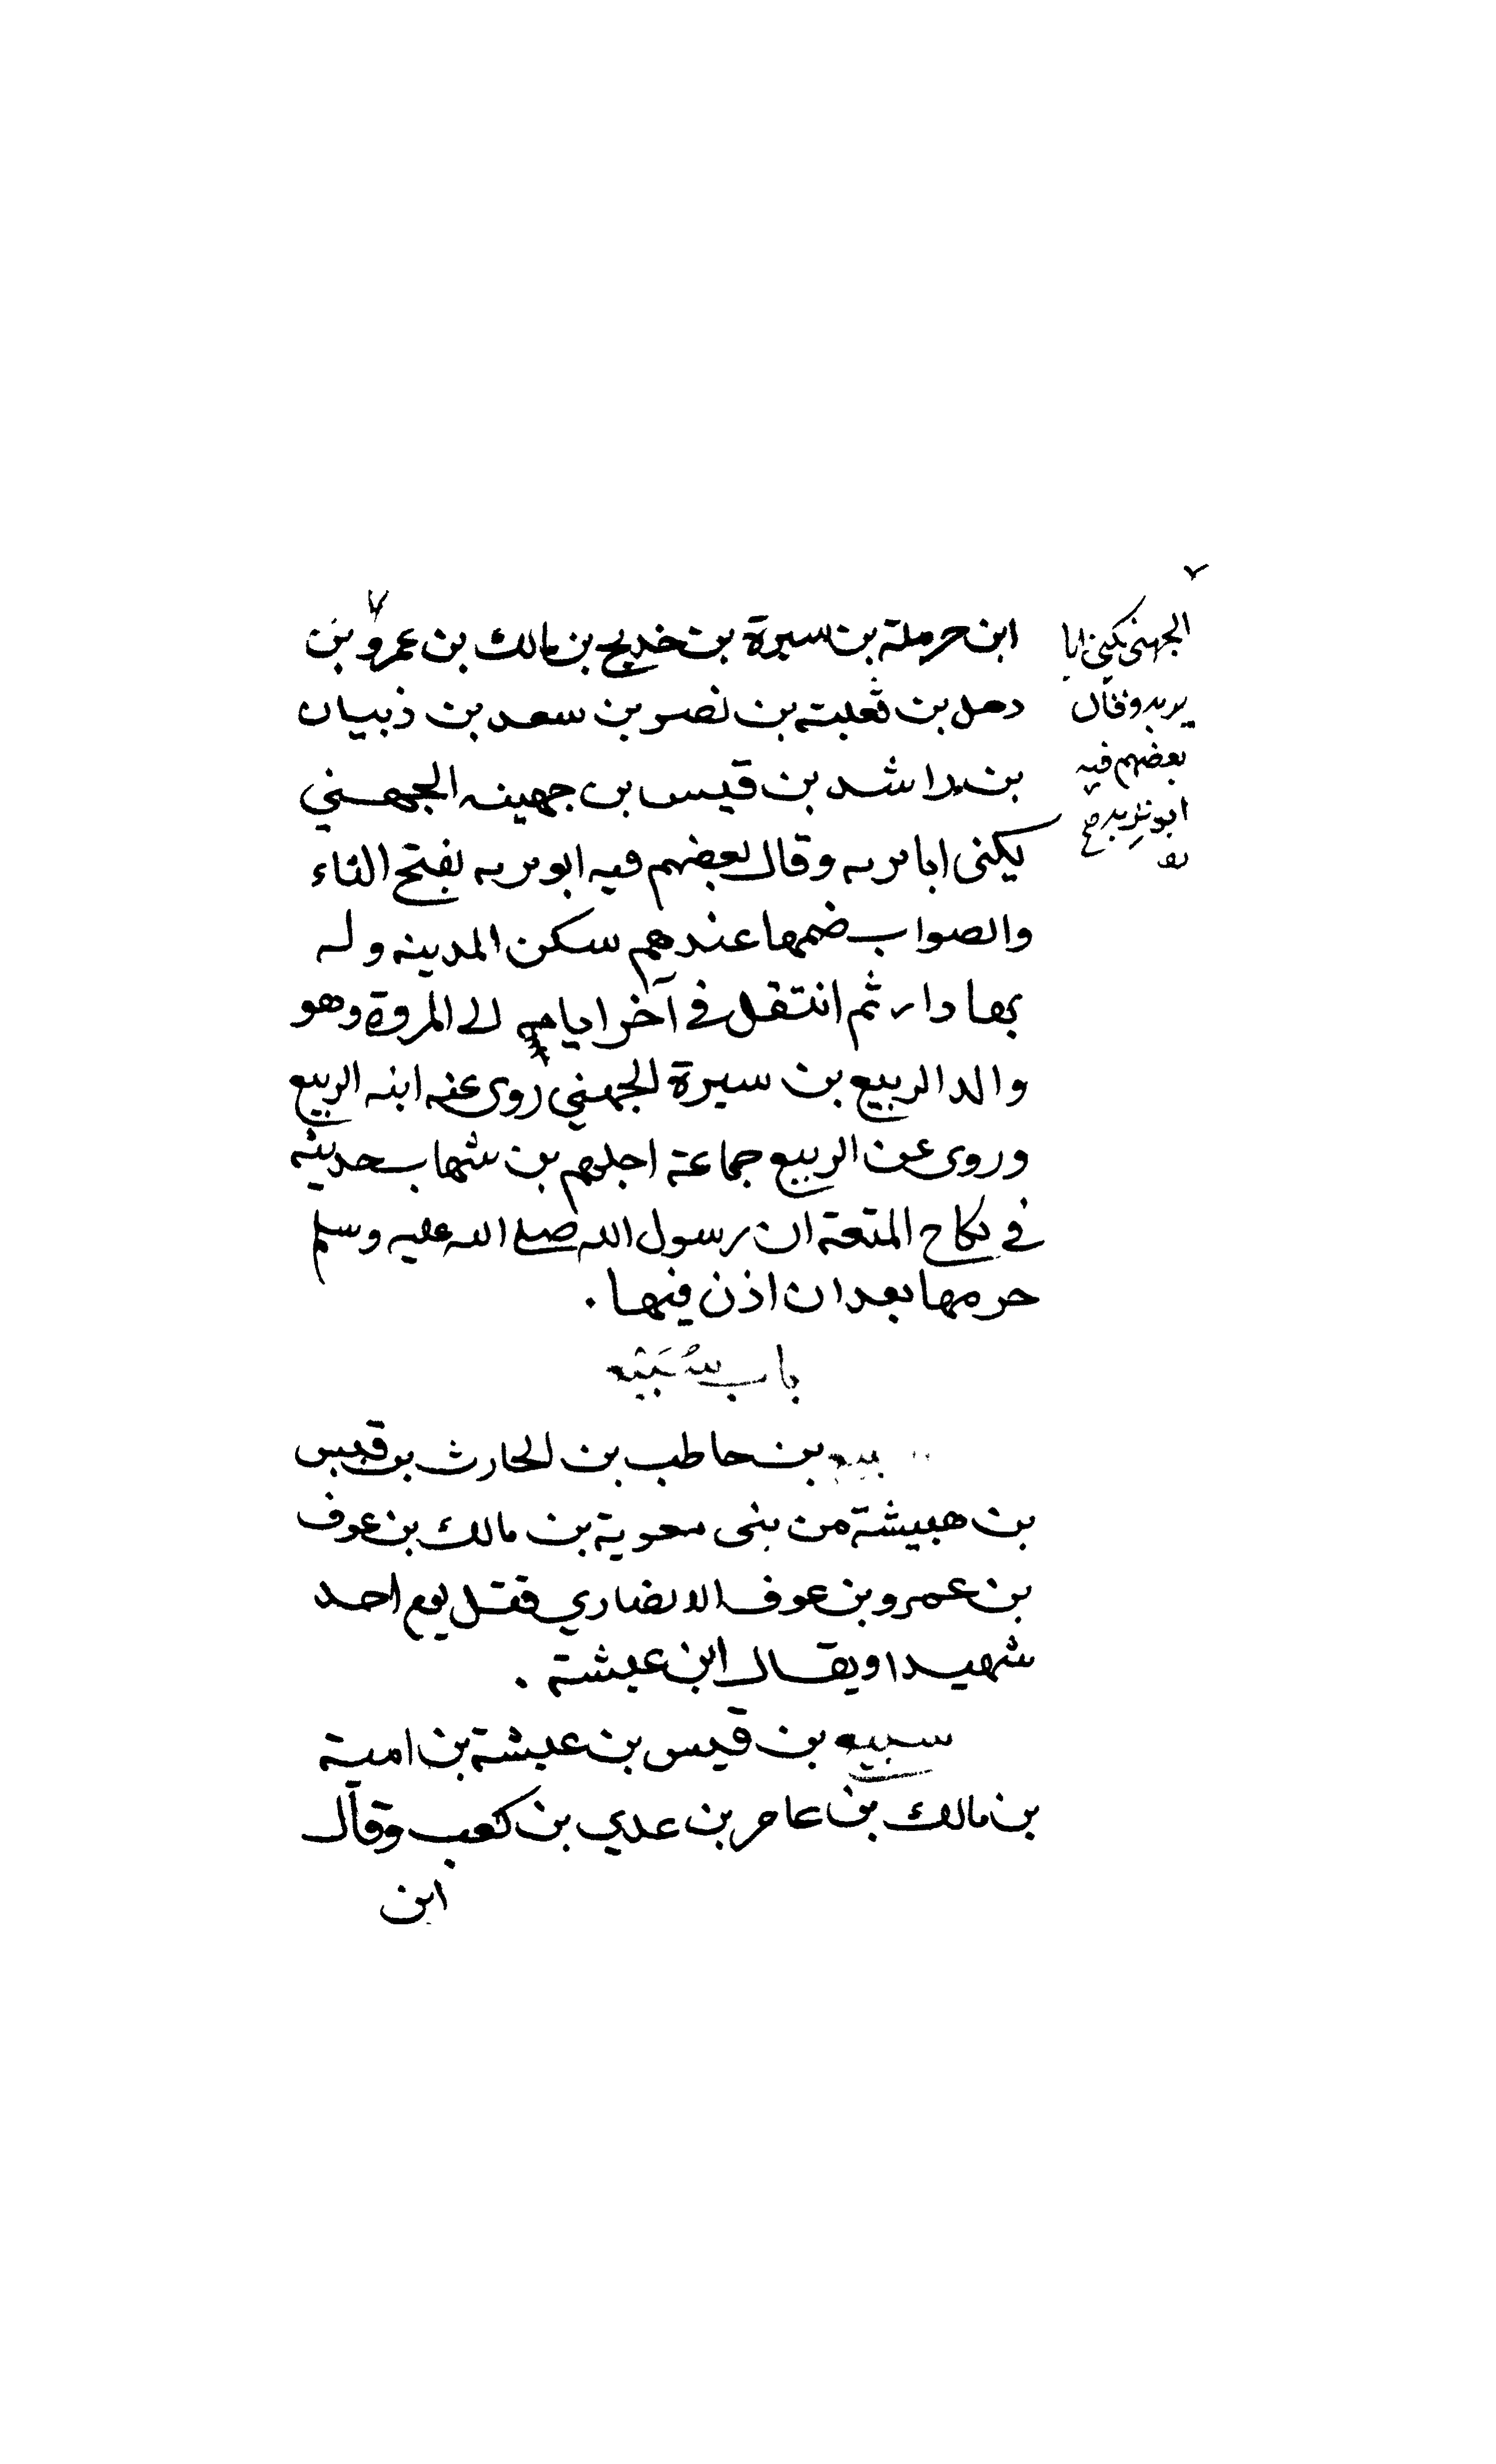 ابن حرملة بن سبرة بن خديج بن مالك بن عمرو بن
دهل بن ثعلبة بن نصر بن سعد بن ذبيان
بن راشد بن قيس بن جهينه الجهني
يكنى ابا ثريه وقال بعضهم فيه ابو ثريه بفتح الثاء
والصواب ضمها عندهم سكن المدينه وله
بها دار ثم انتقل في آخر ايامه الى المروة وهو
والد الربيع بن سبرة الجهني روى عنه ابنه الربيع
وروى عن الربيع جماعة اجلهم بن شهاب حديثه
في نكاح المتعة ان رسول الله صلى الله عليه وسلم
حرمها بعد ان اذن فيها.
باب
بن حاطب بن الحارث بن قيس
بن هبيشة من بني معوية بن مالك بن عوف
بن عمرو بن عوف الانصاري قتل يوم احد
شهيدا ويقال ابن عبشة.
سبيع بن قيس بن عبشة بن امية
بن مالك بن عامر بن عدي بن كعب وقال
ابن
الجهني يكنى ابا
وقال
بعضهم فيه
ابو